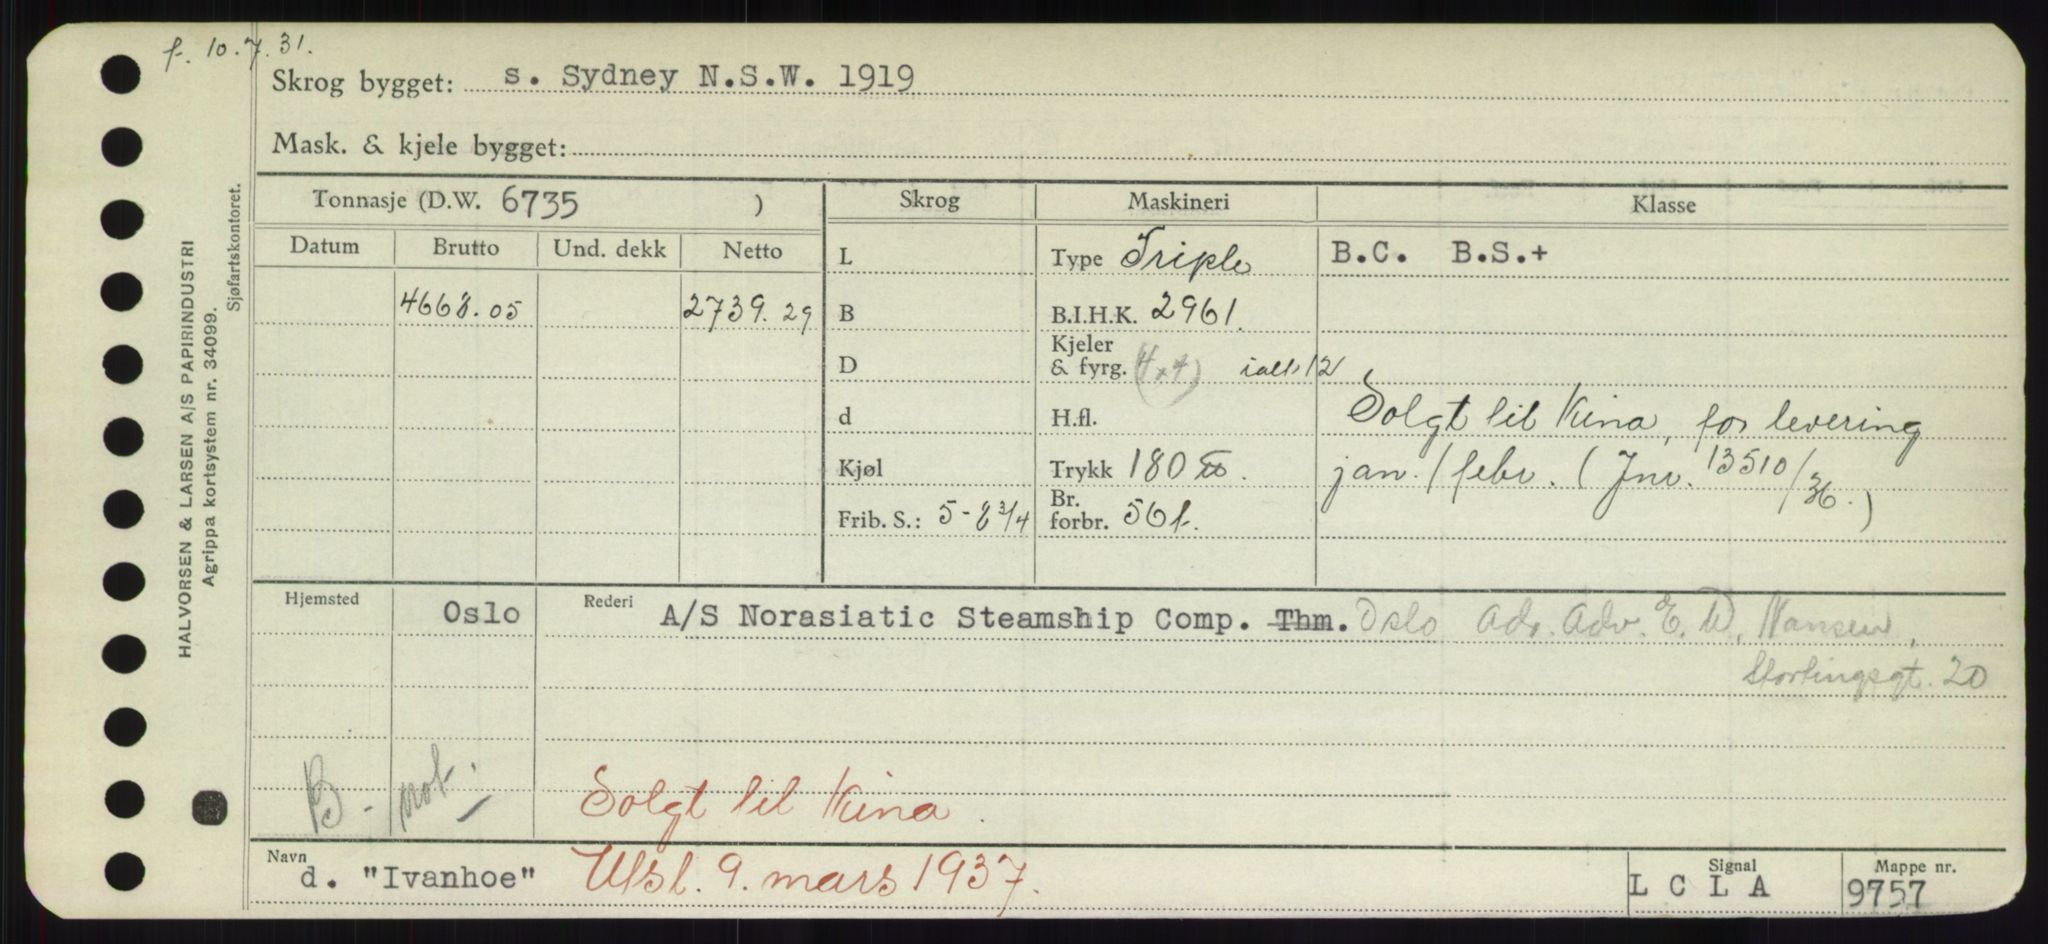 f. 10.7.31.
Skrog bygget: s. Sydney N.S.W. 1919
Mask. & kjele bygget:
Tonnasje (D.W. 6735 ) Skrog Maskineri Klasse
Datum Brutto Und. dekk Netto L Type Triple B.C. B.S.+
4668.05 2739.29 B B.I.H.K. 2961.
D Kjeler & fyrg. (4x4) ialt 12
d H.fl. Solgt til Kina, for levering
Kjøl Trykk 180 jan./febr. (Jnr. 13510/36.)
Frib. S.: 5-8 3/4 Br. forbr. 56 t.
Hjemsted Oslo Rederi A/S Norasiatic Steamship Comp. Thm. Oslo Adr. Adv. E. W. Hansen,
Stortingsgt. 20
B - not.
Solgt til Kina.
Navn d. "Ivanhoe" Utsl. 9. mars 1937. Signal L C L A Mappe nr. 9757
HALVORSEN & LARSEN A/S PAPIRINDUSTRI
Agrippa kortsystem nr. 34099.
Sjøfartskontoret.